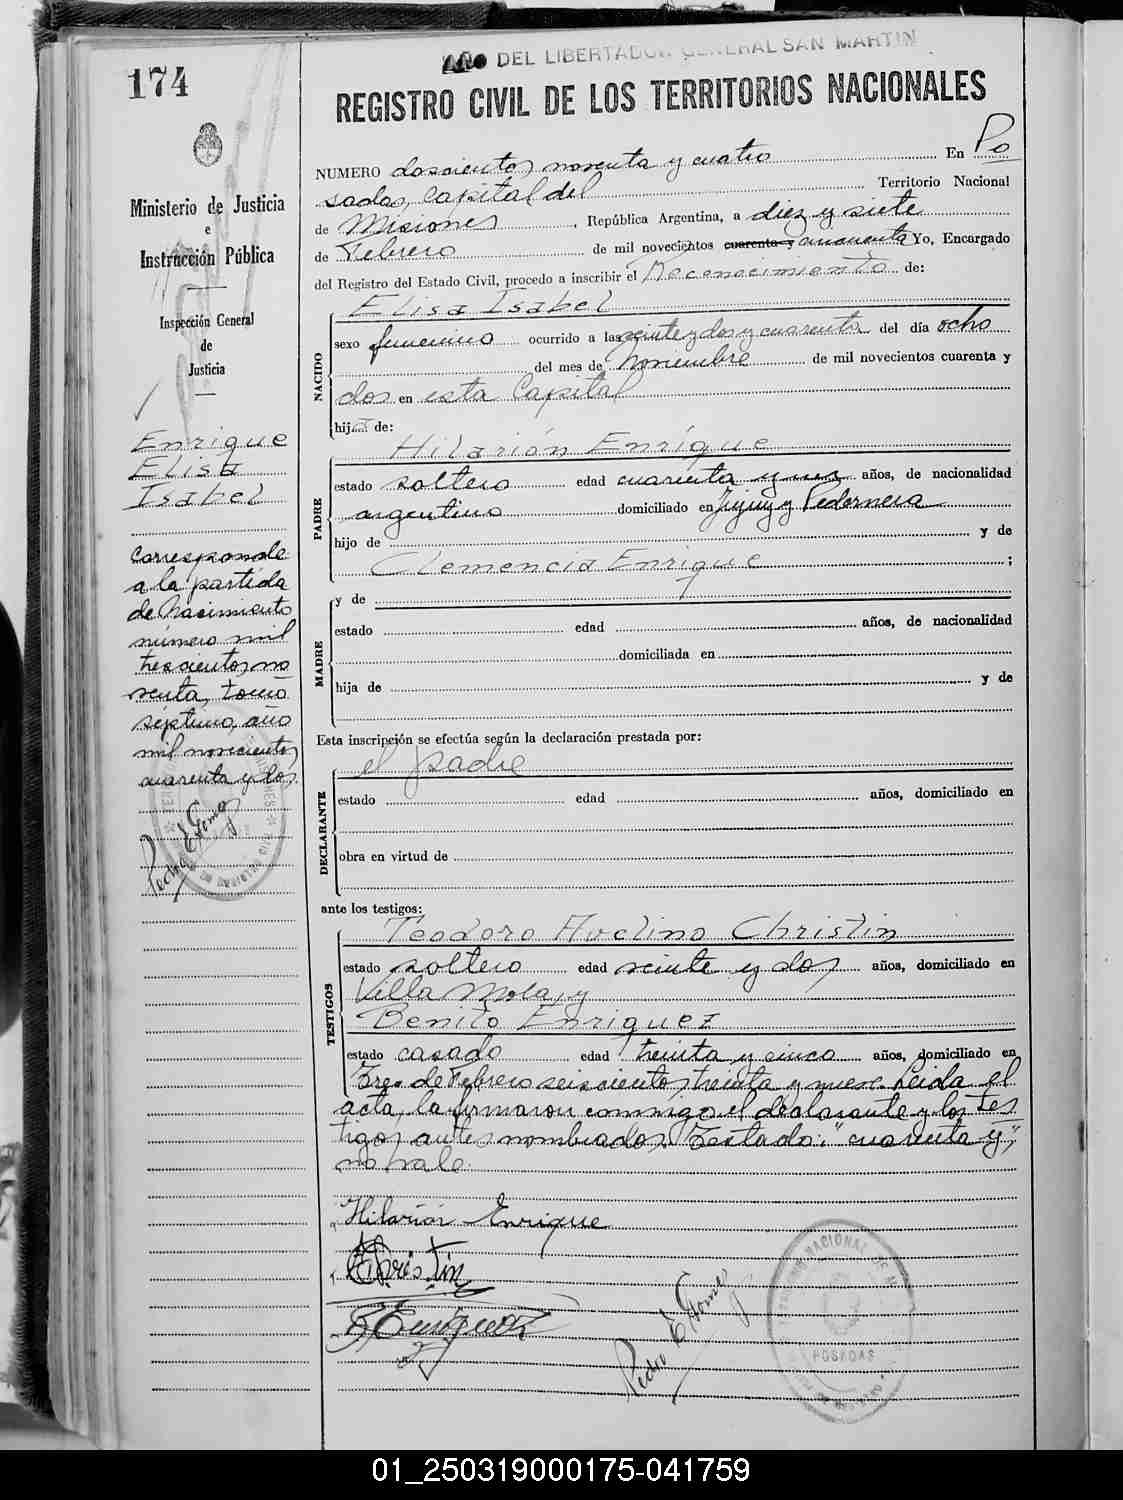 AÑO DEL LIBERTADOR GENERAL SAN MARTIN
174
REGISTRO CIVIL DE LOS TERRITORIOS NACIONALES
Ministerio de Justicia
e
Instrucción Pública
Inspección General
de
Justicia
Enrique
Elisa
Isabel
Corresponde
a la partida
de Nacimiento
número mil
trescientos no
venta, tomo
séptimo, año
mil novecientos
cuarenta y dos
Pedro E Gomez
NUMERO doscientos noventa y cuatro En Po
sadas, Capital del Territorio Nacional
de Misiones, República Argentina, a diez y siete
de Febrero de mil novecientos cuarenta y cincuenta Yo, Encargado
del Registro del Estado Civil, procedo a inscribir el Reconocimiento de:
Elisa Isabel
NACIDO
sexo femenino ocurrido a las veinte y dos y cuarenta del día ocho
del mes de Noviembre de mil novecientos cuarenta y
dos en esta Capital
hija de:
Hilarión Enrique
PADRE
estado soltero edad cuarenta años, de nacionalidad
argentino domiciliado en Jujuy y Pedernera
hijo de y de
Clemencia Enrique ;
y de
MADRE
estado edad años, de nacionalidad
domiciliada en
hija de y de
Esta inscripción se efectúa según la declaración prestada por:
el padre
DECLARANTE
estado edad años, domiciliado en
obra en virtud de
ante los testigos:
Teodoro Avelino Christin
TESTIGOS
estado soltero edad veinte y dos años, domiciliado en
Villa Mola, y
Benito Enriquez
estado casado edad treinta y cinco años, domiciliado en
Tres de Febrero seiscientos treinta y nueve. Leida el
acta, la firmaron conmigo el declarante y los tes
tigos antes nombrados. Testado: "cuarenta y",
no vale.
Hilarión Enrique
Christin
B Enriquez
Pedro E Gomez
POSADAS
01_250319000175-041759